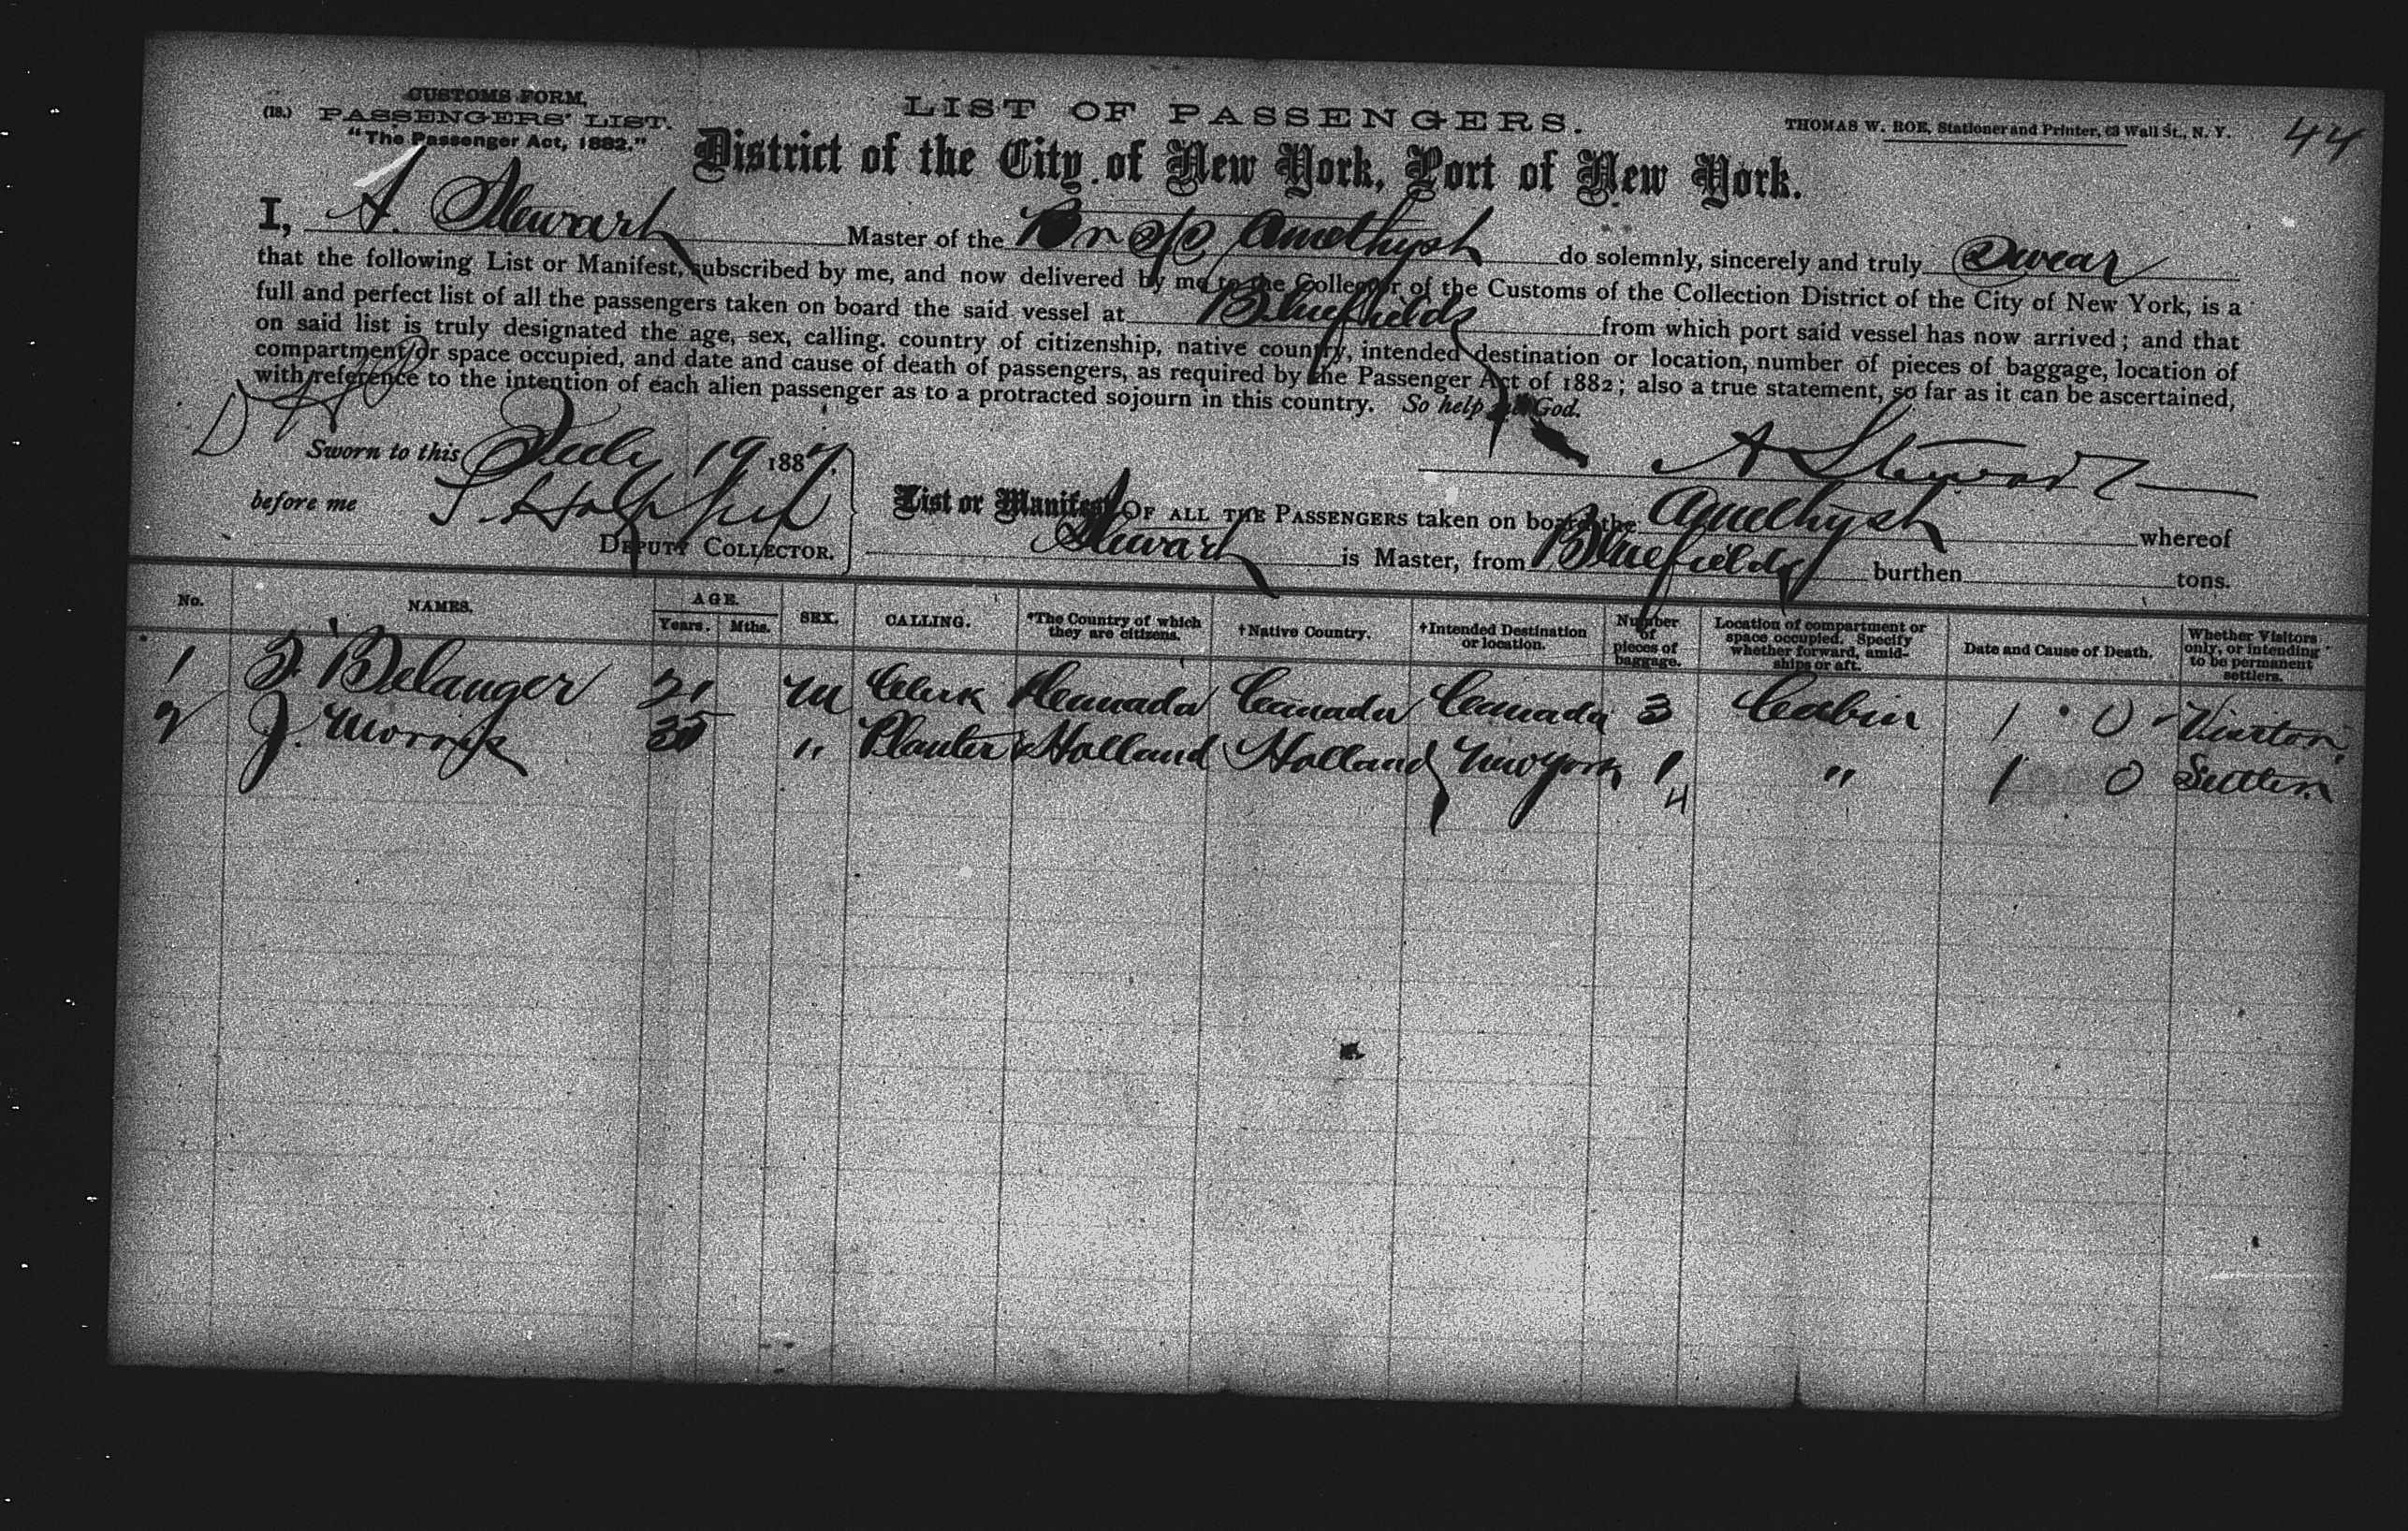 CUSTOMS FORM,
(18.) PASSENGERS' LIST.
"The Passenger Act, 1882."
LIST OF PASSENGERS.
THOMAS W. ROE, Stationer and Printer, 63 Wall St., N. Y.
44
District of the City of New York, Port of New York.
I, A. Stewart Master of the Br S/S Amethyst do solemnly, sincerely and truly Swear
that the following List or Manifest, subscribed by me, and now delivered by me to the Collector of the Customs of the Collection District of the City of New York, is a
full and perfect list of all the passengers taken on board the said vessel at Bluefields from which port said vessel has now arrived; and that
on said list is truly designated the age, sex, calling, country of citizenship, native country, intended destination or location, number of pieces of baggage, location of
compartment or space occupied, and date and cause of death of passengers, as required by the Passenger Act of 1882; also a true statement, so far as it can be ascertained,
with reference to the intention of each alien passenger as to a protracted sojourn in this country. So help God.
Sworn to this July 19 1887.
A Stewart
before me
DEPUTY COLLECTOR.
List or Manifest OF ALL THE PASSENGERS taken on board the Amethyst whereof
Stewart is Master, from Bluefields burthen tons.
No. NAMES. AGE. Years. Mths. SEX. CALLING. *The Country of which they are citizens. †Native Country. †Intended Destination or location. Number of pieces of baggage. Location of compartment or space occupied. Specify whether forward, amidships or aft. Date and Cause of Death. Whether Visitors only, or intending to be permanent settlers.
1 Belanger 21 M Clerk Cannada Cannada Cannada 3 Cabin 1 0
2 J. " Planter Holland Holland New York 1 " 1 0
4